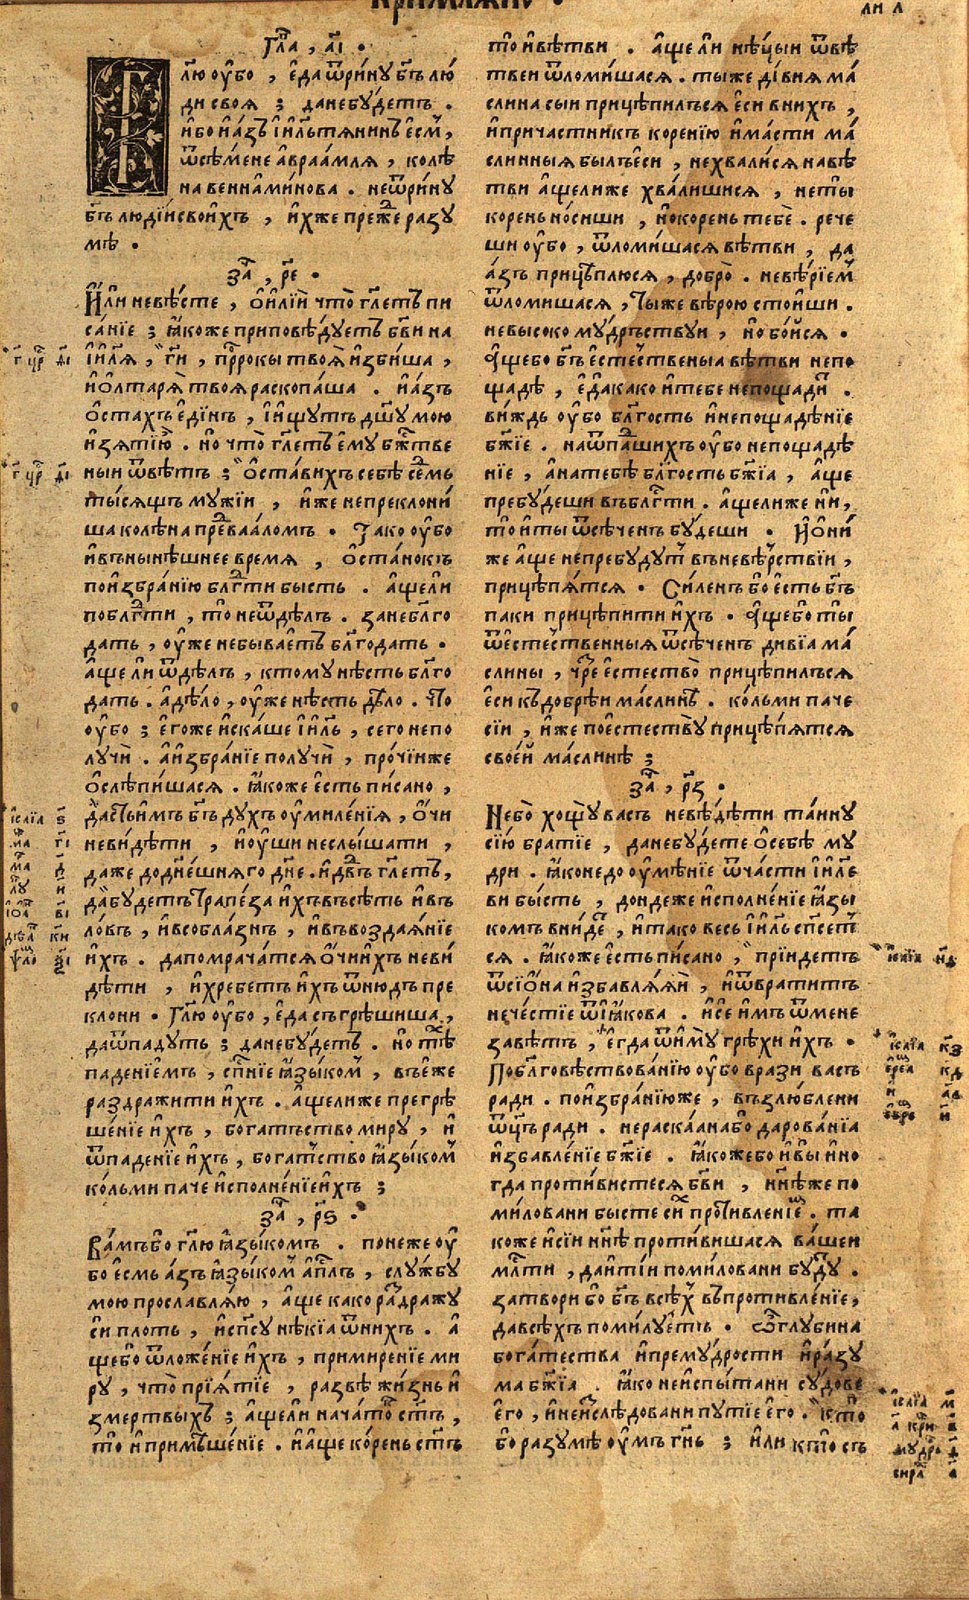 Кри́млѧ́нѡⷨ ·
ли л
Гла̀ , а҃і ·
Глю оу҆бо , є҆да ѿри́ну бг҃ъ лю́
ди своѧ ; дане бу́детъ .
и҆бо и҆ а҆зъ і҆и҃льтѧнинъ є҆смь ,
ѿ сѣ́мене а҆враа́млѧ , колѣ
на венїами́нова . не ѿри́ну
бг҃ъ люді́й свои́хъ , и҆хже пре́же разу
мѣ .
за҃ , р҃е ·
И҆ли невѣ́сте , о҆ и҆лїѝ что̀ гл҃етъ пи
са́нїе ; ꙗ҆́коже приповѣ́дуетъ бг҃ви на
і҆и҃лѧ , гд҃и , прⷪ҇рокы твоѧ̀ и҆зби́ша ,
и҆ о҆лтарѧ̀ твоѧ раскопа́ша . и҆ а҆́зъ
о҆ста́хъ є҆ди́нъ , и҆ и҆́щутъ дш҃у мою
и҆зѧ́ти ю҆̀ . но что̀ гл҃етъ є҆му бж҃тве
ныи ѿвѣ́тъ ; о҆ста́вихъ себѣ̀ се́дмь
ты́сѧщъ му́жїи , и҆́же не преклони́
ша колѣ́на пре́д ваа́ломъ · Та́ко оу҆бо
и҆ въ ны́нѣшнее времѧ , о҆ста́нокъ
по и҆збра́нїю блг҃ти бысть . а҆ще ли
по блг҃ти , то не ѿ дѣ́лъ . зане блг҃о
дать , оу҆же не быва́етъ блг҃одать ·
а҆́ще ли ѿ дѣлъ , к тому нѣ́сть блг҃о
дать . а҆ дѣ́ло , оу҆же нѣсть дѣло . Что
оу҆бо ; є҆го́же и҆ска́ше і҆и҃ль , сего не по
лучѝ . а҆ и҆збра́нїе получѝ , про́чїи же
о҆слѣпи́шасѧ . ꙗ҆́коже є҆́сть пи́сано ,
да́стъ и҆мъ бг҃ъ ду́хъ оу҆миле́нїѧ , о҆́чи
не ви́дѣти , и҆ оу҆́ши не слы́шати ,
да́же до дне́шнѧго дне . и҆ дв҃дъ гл҃етъ ,
да бу́детъ трапе́за и҆́хъ въ сѣть и҆ въ
ло́въ , и҆ в собла́знъ , и҆ въ возда́ѧнїе
и҆́хъ . да помрача́тсѧ о҆́чи и҆́хъ не ви́
дѣти , и҆ хребе́тъ и҆́хъ ѿню́дъ пре
клони · Глю оу҆бо , є҆да съгрѣши́ша ,
да ѿпаду́ть ; дане бу́детъ . но тѣ́х
паде́нїемъ , сп҃нїе ꙗ҆зы́комъ , въ є҆́же
раздражи́ти и҆́хъ . а҆́ще ли же прегрѣ
ше́нїе и҆́хъ , бога́тьство миру , и҆
ѿпаденїе и҆́хъ , бога́тство ꙗ҆зы́комъ
ко́льми паче и҆сполне́нїе и҆́хъ ;
за҃ , р҃ѕ ·
Ва́мъ бо гл҃ю ꙗ҆зы́комъ . поне́же оу҆
бо є҆смь а҆́зъ ꙗ҆зы́комъ а҆пⷭ҇лъ , слу́жбу
мою прославлѧ́ю , а҆́ще како ра́здражу
си плоть , и҆ сп҃су нѣ́кїа ѿ ни́хъ . а҆
ще бо ѿложе́нїе и҆́хъ , примире́нїе ми
ру , что̀ прїѧ́тїе , разве́ жи́знь и҆
з ме́ртвыхъ ; а҆́ще ли нача́токъ ст҃ъ ,
то и҆ примѣше́нїе . и҆ а҆ще ко́рень ст҃ъ
то и҆ вѣ́тви . а҆́ще ли нѣ́цыи ѿ вѣ
твеи ѿломи́шасѧ . ты же ди́вїѧ ма́
слина сыи прицѣпи́лъсѧ є҆си в ни́хъ ,
и҆ прича́стникъ коре́нїю и҆ ма́сти ма́
слинныѧ бы́лъ є҆си , не хвали́сѧ на вѣ́
тви а҆́ще ли же хва́лишисѧ , не ты̀
ко́рень но́сиши , но́ ко́рень тебѐ . рече
ши оу҆̀бо , ѿломи́шасѧ вѣ́тви , да
а҆́зъ прицѣплю́сѧ , добро̀ . невѣ́рїемъ
ѿломи́шасѧ , ты́ же вѣ́рою стои́ши .
не высо́ко му́дръствуи , но бо́йсѧ .
А҆ще бо бг҃ъ є҆сте́ственыа вѣ́тви не по
щадѣ , є҆да ка́ко и҆ тебе не пощади́т .
ви́ждь оу҆̀бо бл҃гость и҆ непощадѣ́нїе
бж҃їе . на ѿпа́дшихъ оу҆бо непощадѣ́
нїе , а҆ на тебѣ̀ бл҃гость бж҃їа , а҆ще
пребу́деши въ блг҃ти . а҆́ще ли же ни ,
то и҆ ты ѿсѣ́ченъ бу́деши · И҆ о҆ни́
же а҆ще не пребудутъ въ невѣ́рствїи ,
прицѣпѧ́тсѧ · Си́ленъ бо є҆сть бг҃ъ
паки прицѣпи́ти и҆́хъ · А҆ще бо ты
ѿ є҆сте́ственныѧ ѿсѣченъ ди́вїа ма́
слины , чре́з є҆стество̀ прицѣпи́лъсѧ
є҆си къ до́брѣи ма́слинѣ . ко́льми паче
сїи , и҆́же по є҆стеству̀ прицѣпѧ́тсѧ
свое́й ма́слинѣ ;
за҃ , р҃з ·
Не бо̀ хощу̀ васъ невѣ́дѣти та́ину
сїю̀ бра́тїе , дане бу́дете о҆ себѣ̀ му́
дри . ꙗ҆́ко недооу҆мѣ́нїе ѿ ча́сти і҆и҃ле
ви бы́сть , до́ндеже и҆сполне́нїе ꙗ҆зы́
комъ вни́дет , и҆ тако весь і҆и҃ль сп҃сет
сѧ . ꙗ҆́коже є҆́сть пи́сано , прїи́детъ
ѿ сїо́на и҆збавлѧ́ѧй , и҆ ѿврати́тъ
нече́стїе ѿ ꙗ҆́кова . и҆ се́ и҆мъ ѿ мене
завѣ́тъ , є҆гда ѿиму̀ грѣхи и҆́хъ ·
По блг҃овѣ́ствова́нїю оу҆бо врази васъ
ради . по и҆збра́нїю же , възлю́блени
ѿц҃ъ ради . нераска́анна бо дарова́нїа
и҆ зва́нїе бж҃їе . ꙗ҆́коже бо и҆ вы и҆но
гда проти́вистесѧ бг҃ви , нн҃ѣ же по
ми́ловани бы́сте си́х проти́вленїем . та
коже и҆ сїи нн҃ѣ проти́вишасѧ ва́шеи
мл҃ти , да и҆ ті́и поми́ловани бу́ду́т .
затвори бо бг҃ъ всѣ́х въ противле́нїе ,
да всѣ́хъ поми́луетъ · Ѽ глубина
бога́тества и҆ прему́дрости и҆ разу
ма бж҃їа . ꙗ҆́ко неиспы́тани су́дове
є҆го , и҆ неи́слѣ́довани пу́тїе є҆го . кто̀
бо разумѣ оу҆́мъ гн҃ь ; и҆ли кто̀ съ